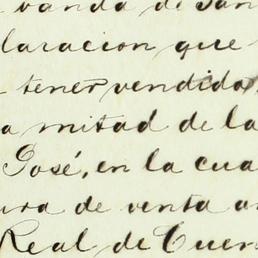 banda de San
laracion que
tener vendida
a mitad de la
José, en la cua
ura de venta a
Real de Cuer